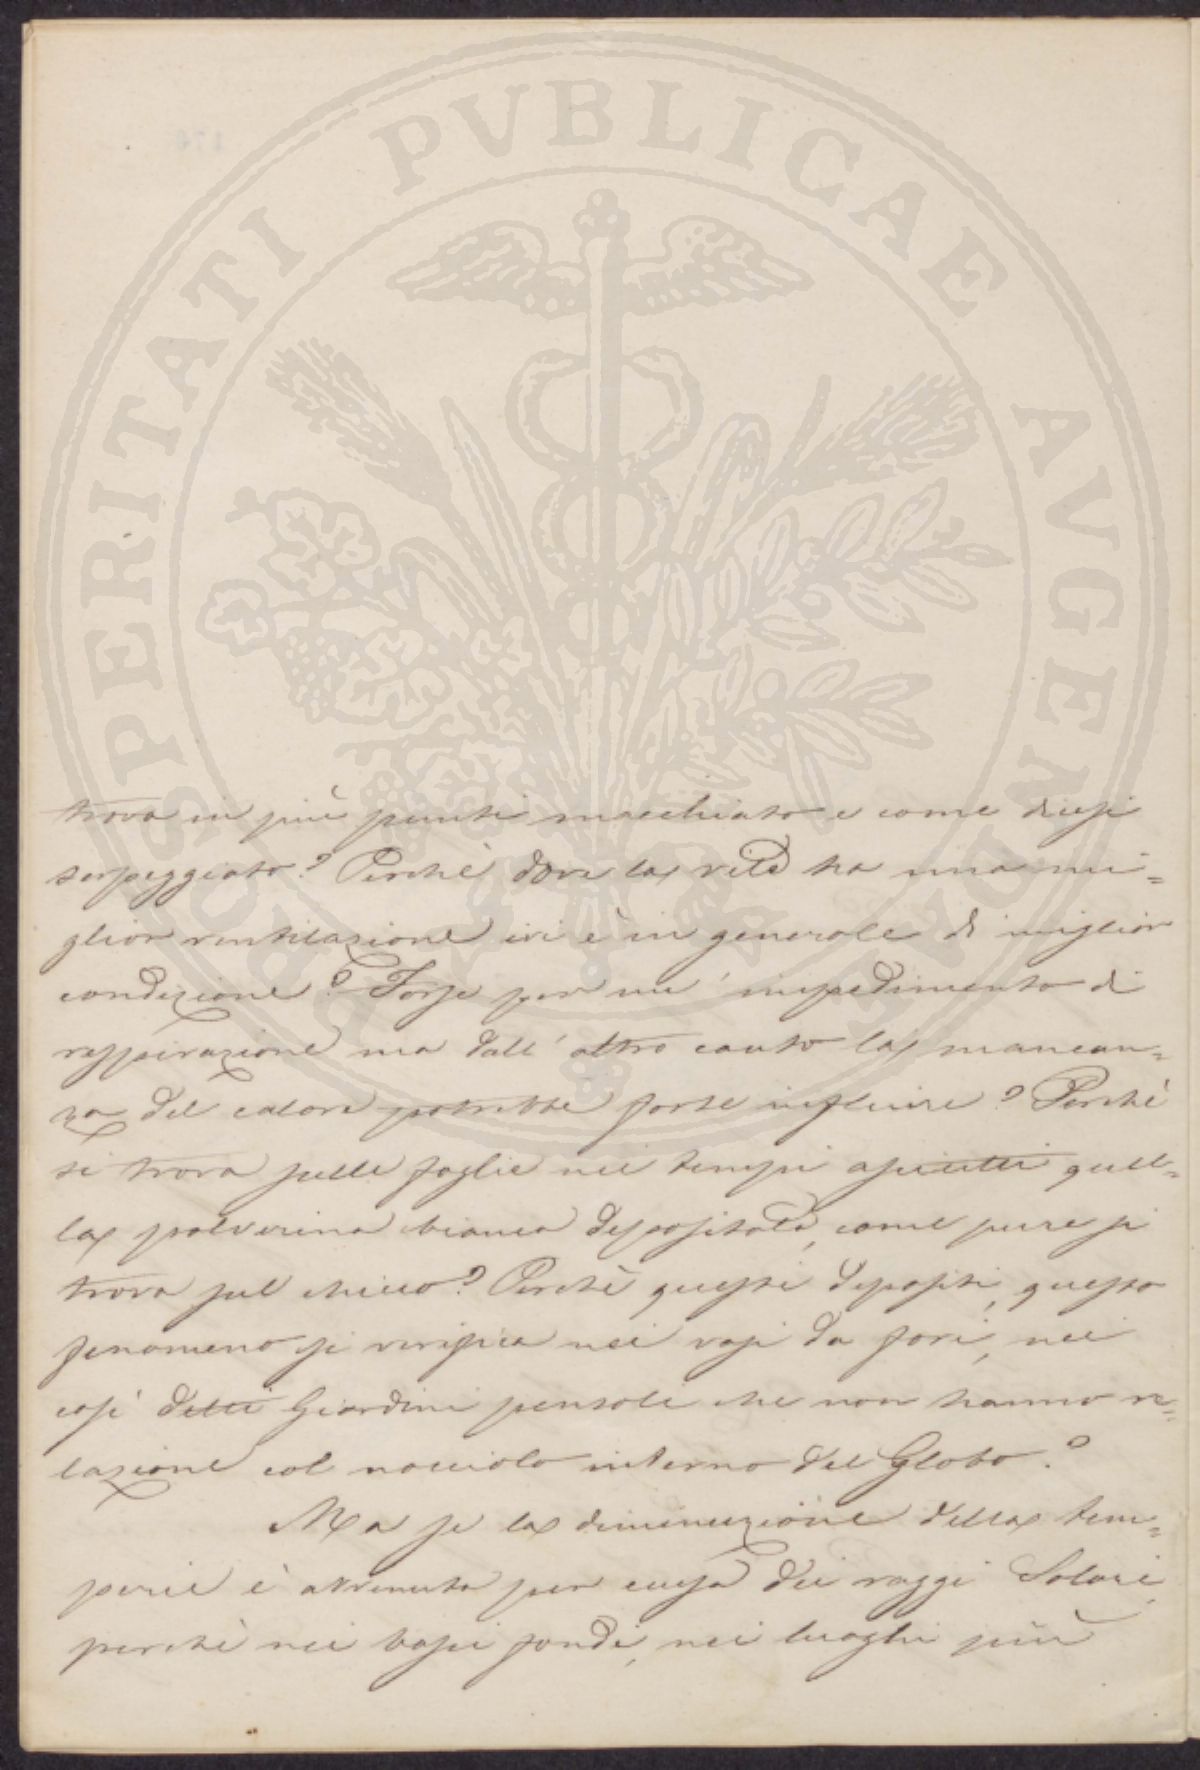 PROSPERITATI PVBLICAE AVGENDAE
trova in più punti macchiato e come diresi
serpeggiato? Perchè dove la vite ha una mi=
glior ventilazione ivi è in generale di miglior
condizione? Forse per un' impedimento di
respirazione ma dall' altro canto la mancan=
za del calore potrebbe forse influire? Perchè
si trova sulle foglie nei tempi asciutti quel=
la polverina bianca depositata, come pure si
trova sul chicco? Perchè questi depositi, questo
fenomeno si verifica nei vasi da fiori, nei
così detti Giardini pensoli che non hanno re=
lazione col nocciolo interno del Globo?
Ma se la diminuzione della tem=
perie è avvenuta per causa dei raggi Solari,
perchè nei bassi fondi, nei luoghi più